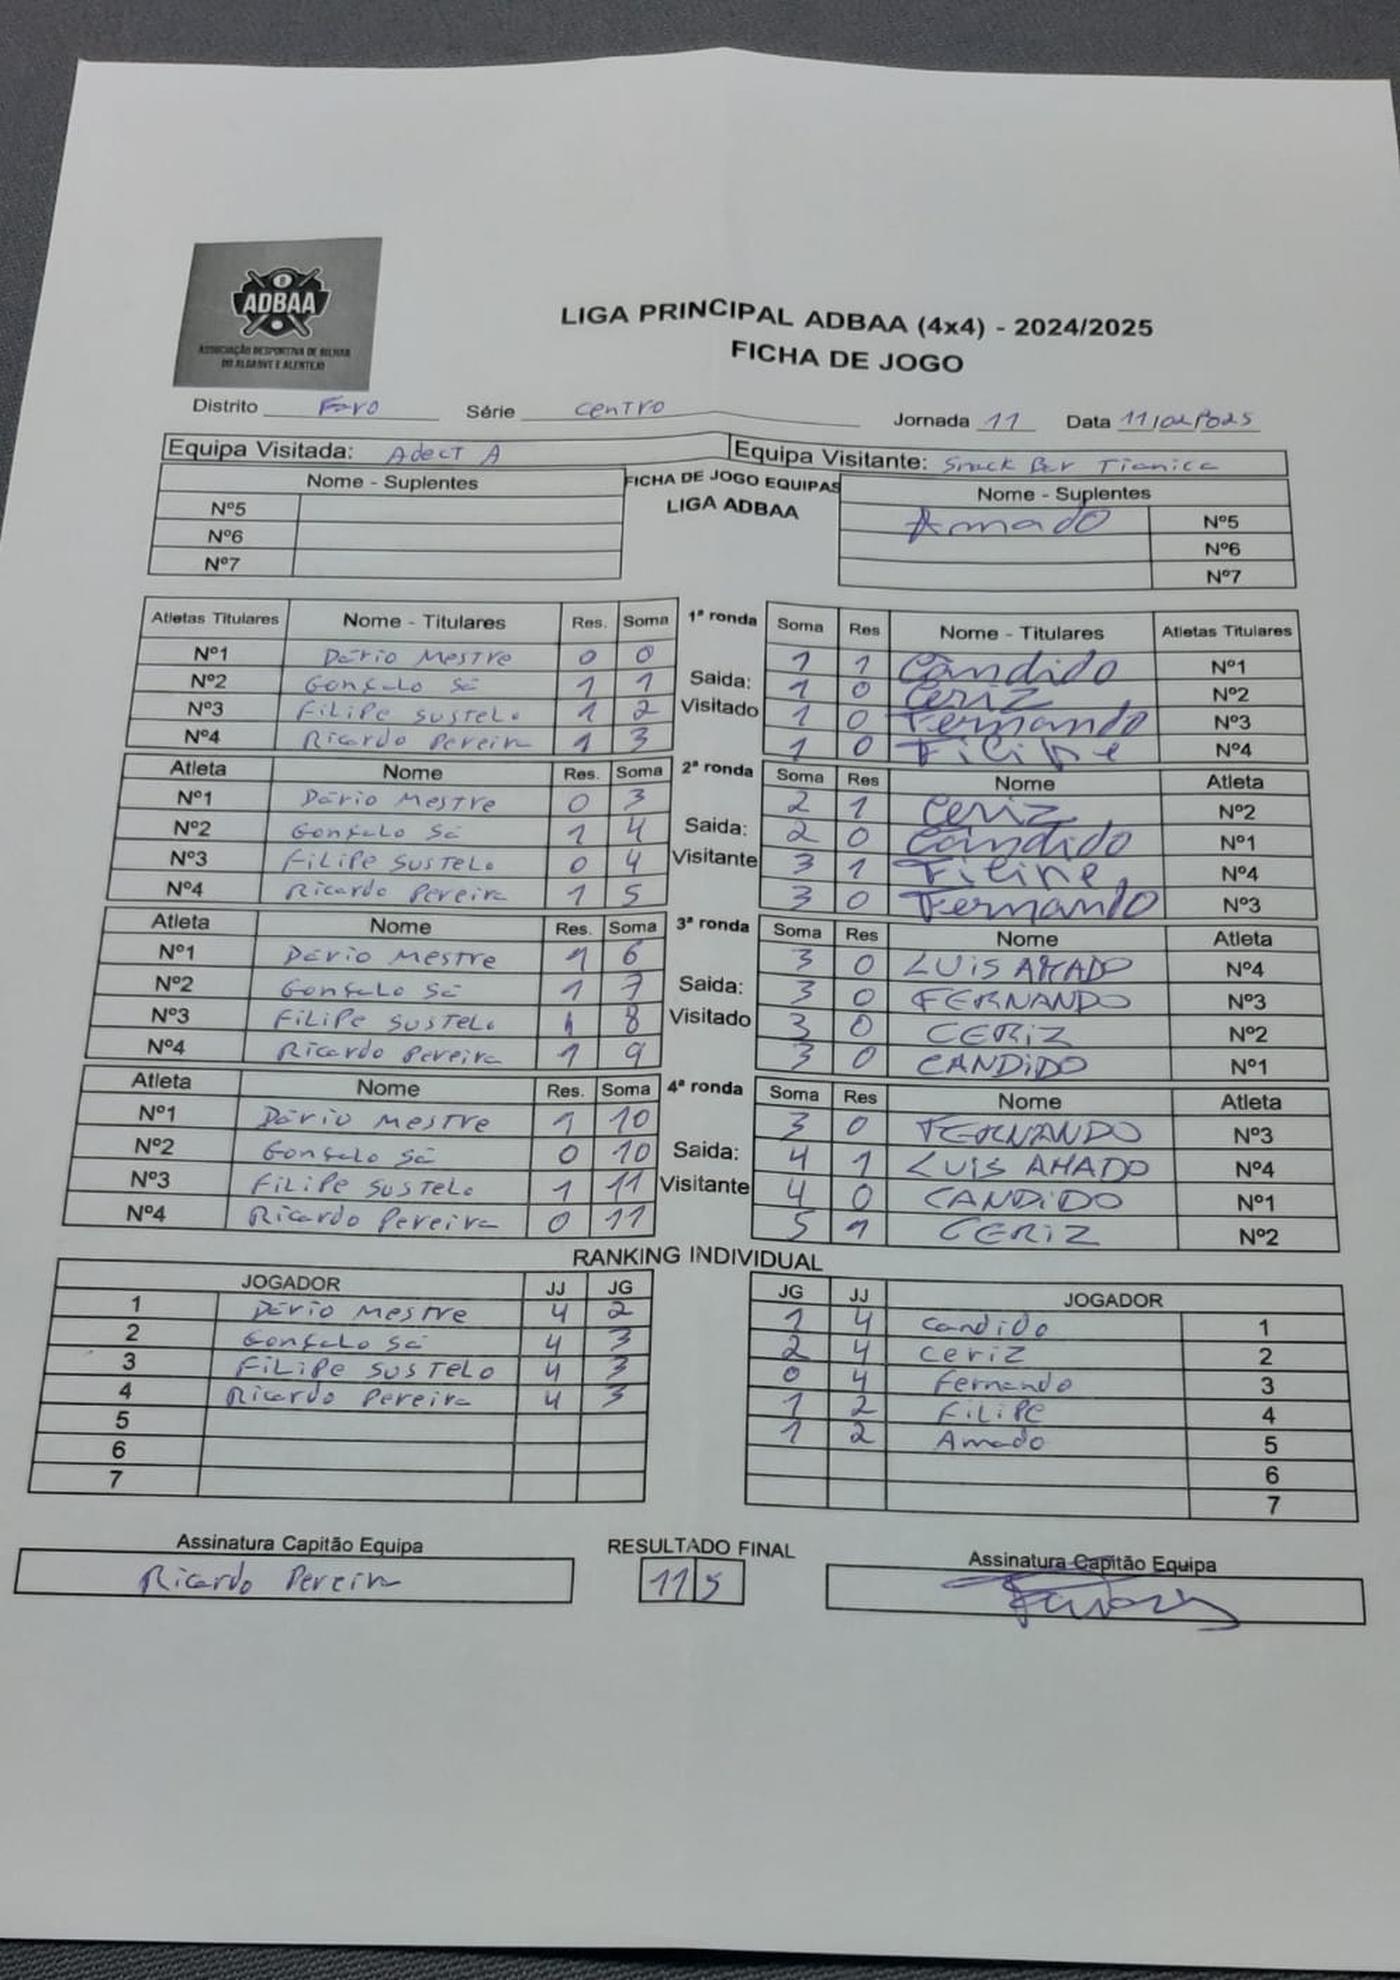 ADBAA
ASSOCIAÇÃO DESPORTIVA DE BILHAR
DO ALGARVE E ALENTEJO
LIGA PRINCIPAL ADBAA (4x4) - 2024/2025
FICHA DE JOGO
Distrito Faro Série Centro Jornada 11 Data 11/02/2025
Equipa Visitada: Adect A Equipa Visitante: Snack Bar Tianica
Nome - Suplentes FICHA DE JOGO EQUIPAS Nome - Suplentes
Nº5 LIGA ADBAA Amado Nº5
Nº6 Nº6
Nº7 Nº7
Atletas Titulares Nome - Titulares Res. Soma 1ª ronda Soma Res Nome - Titulares Atletas Titulares
Nº1 Dário Mestre 0 0 1 1 Candido Nº1
Nº2 Gonçalo Sá 1 1 Saida: 1 0 Ceriz Nº2
Nº3 Filipe Sustelo 1 2 Visitado 1 0 Fernando Nº3
Nº4 Ricardo Pereira 1 3 1 0 Filipe Nº4
Atleta Nome Res. Soma 2ª ronda Soma Res Nome Atleta
Nº1 Dário Mestre 0 3 2 1 Ceriz Nº2
Nº2 Gonçalo Sá 1 4 Saida: 2 0 Candido Nº1
Nº3 Filipe Sustelo 0 4 Visitante 3 1 Filipe Nº4
Nº4 Ricardo Pereira 1 5 3 0 Fernando Nº3
Atleta Nome Res. Soma 3ª ronda Soma Res Nome Atleta
Nº1 Dário Mestre 1 6 3 0 LUIS AMADO Nº4
Nº2 Gonçalo Sá 1 7 Saida: 3 0 FERNANDO Nº3
Nº3 Filipe Sustelo 1 8 Visitado 3 0 CERIZ Nº2
Nº4 Ricardo Pereira 1 9 3 0 CANDIDO Nº1
Atleta Nome Res. Soma 4ª ronda Soma Res Nome Atleta
Nº1 Dário Mestre 1 10 3 0 FERNANDO Nº3
Nº2 Gonçalo Sá 0 10 Saida: 4 1 LUIS AMADO Nº4
Nº3 Filipe Sustelo 1 11 Visitante 4 0 CANDIDO Nº1
Nº4 Ricardo Pereira 0 11 5 1 CERIZ Nº2
RANKING INDIVIDUAL
JOGADOR JJ JG JG JJ JOGADOR
1 Dário Mestre 4 2 1 4 Candido 1
2 Gonçalo Sá 4 3 2 4 Ceriz 2
3 Filipe Sustelo 4 3 0 4 Fernando 3
4 Ricardo Pereira 4 3 1 2 Filipe 4
5 1 2 Amado 5
6 6
7 7
Assinatura Capitão Equipa RESULTADO FINAL Assinatura Capitão Equipa
Ricardo Pereira 11 5